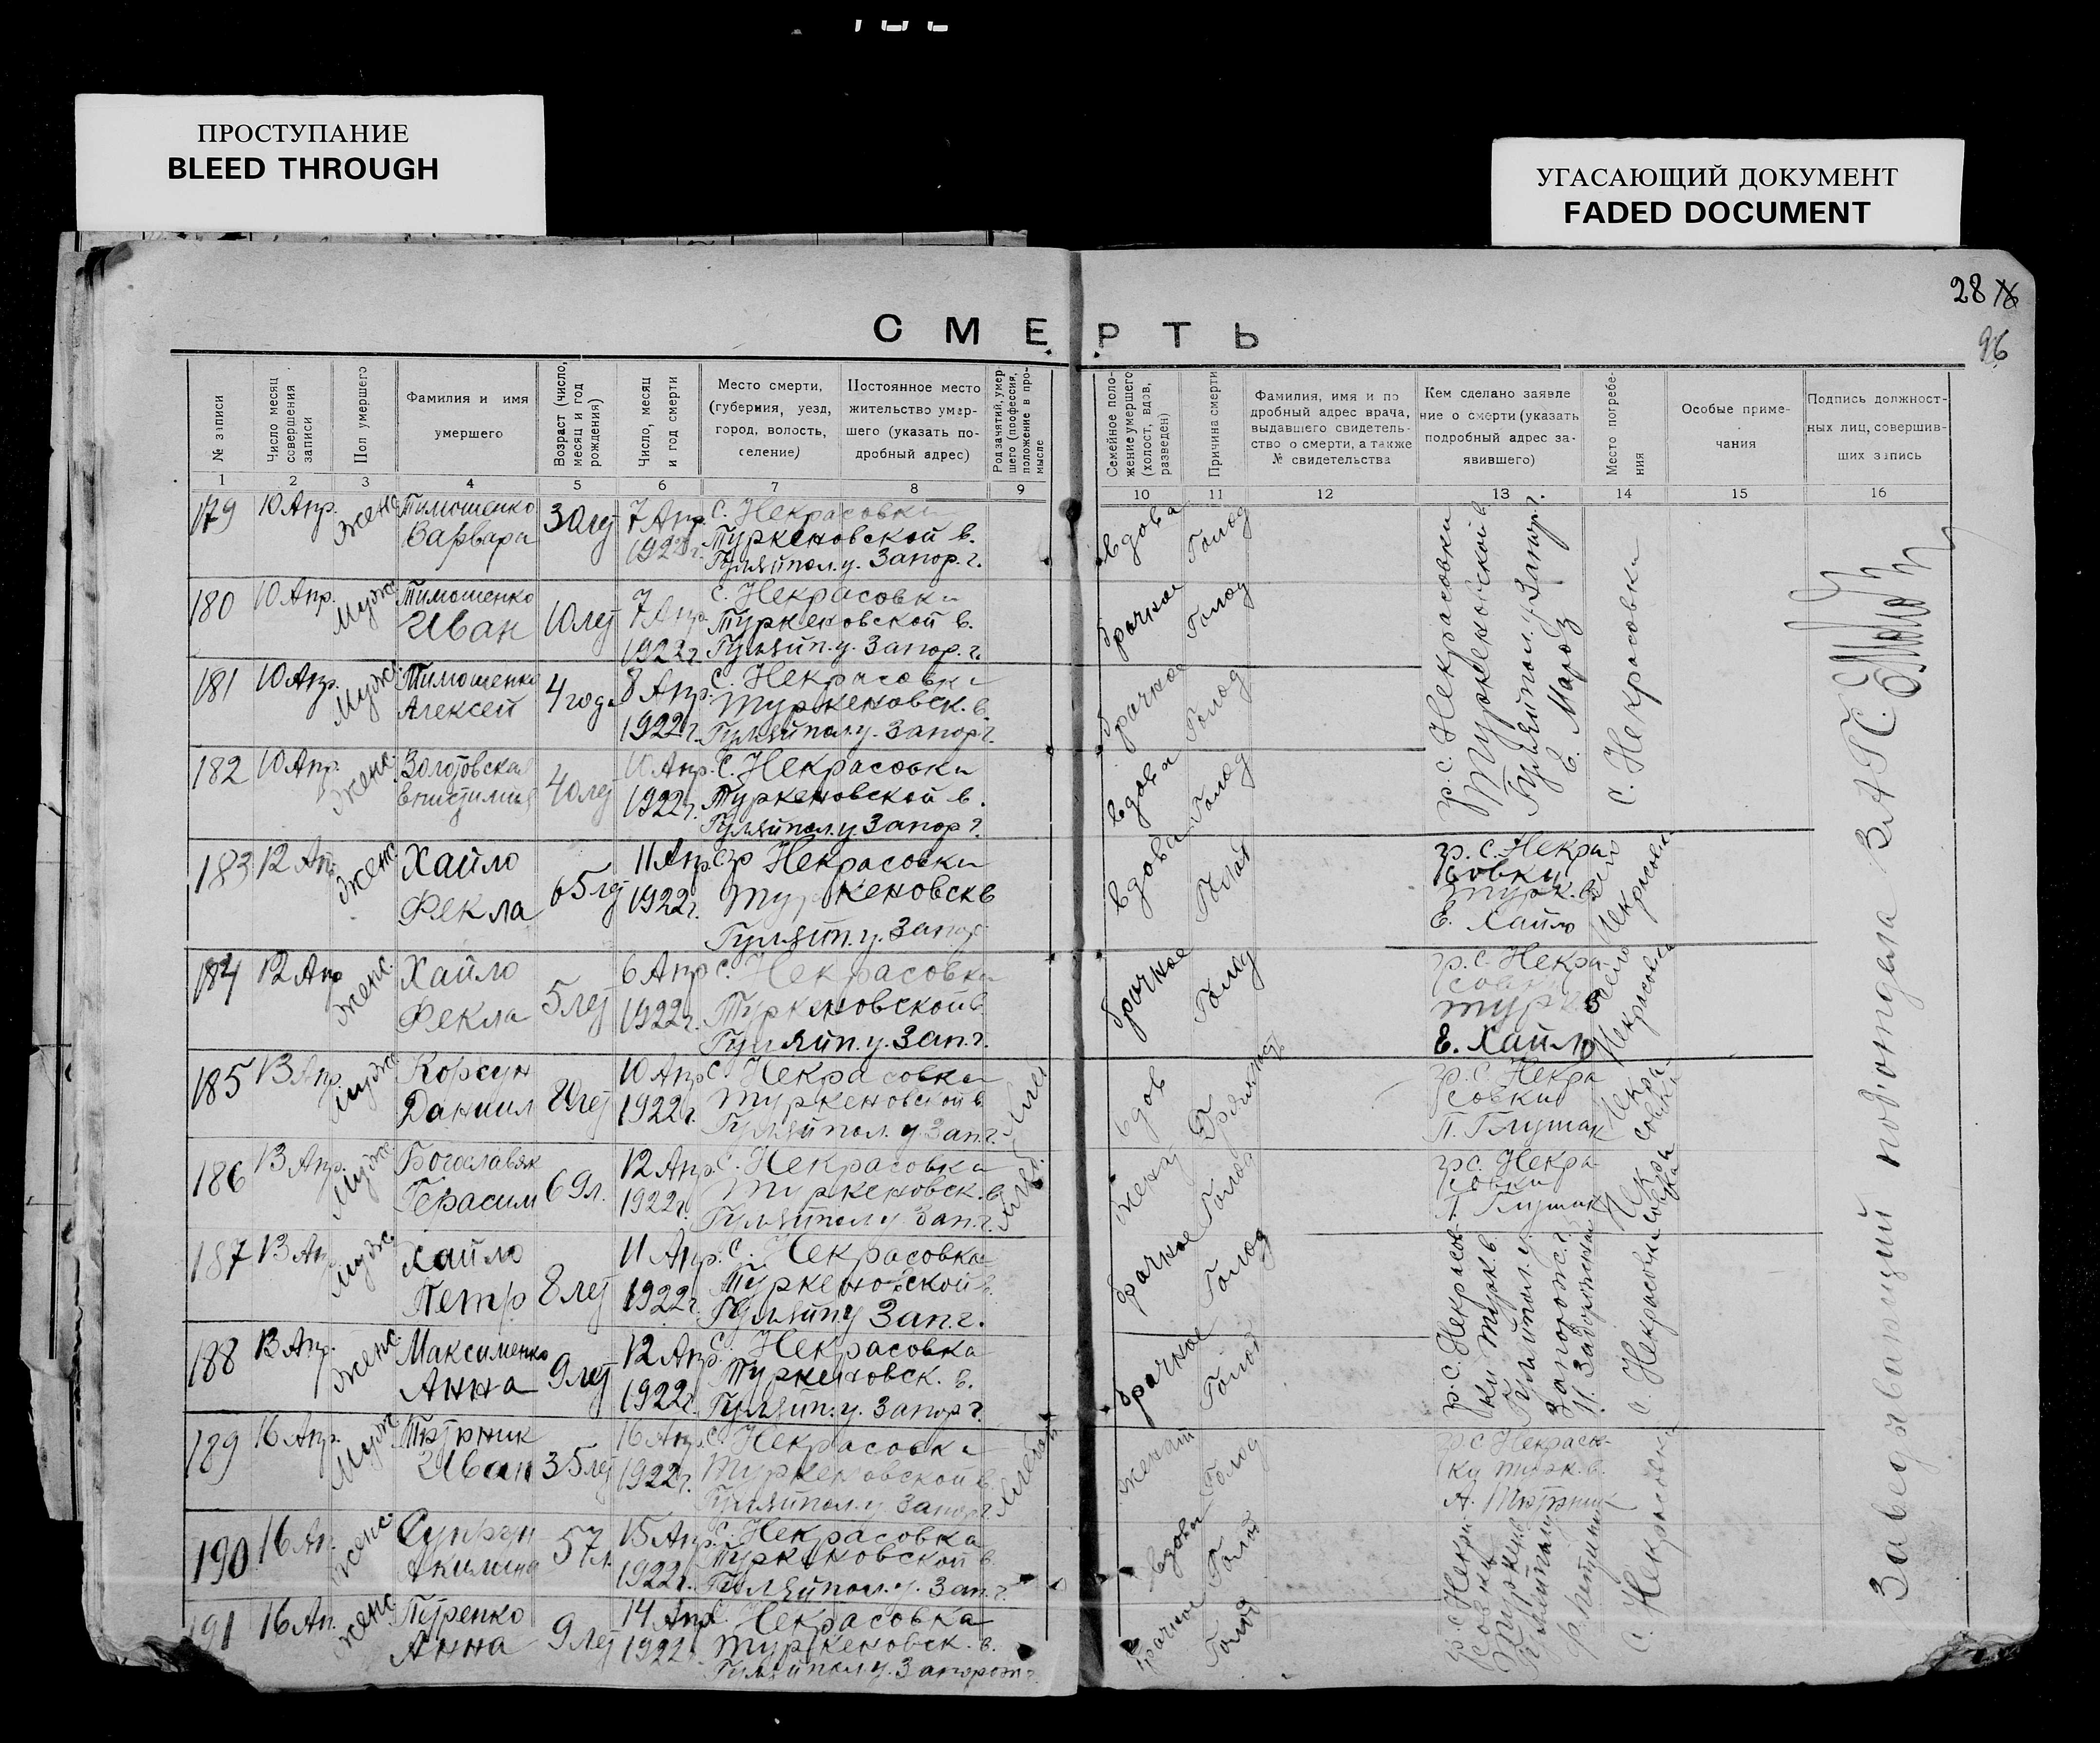 ПРОСТУПАНИЕ
BLEED THROUGH
УГАСАЮЩИЙ ДОКУМЕНТ
FADED DOCUMENT
28
96
СМЕРТЬ
№ записи
Число месяц совершения записи
Пол умершего
Фамилия и имя умершего
Возраст (число, месяц и год рождения)
Число, месяц и год смерти
Место смерти, (губерния, уезд, город, волость, селение)
Постоянное место жительство умершего (указать подробный адрес)
Род занятий, умершего (профессия, положение в промысле
Семейное положение умершего (холост, вдов, разведен)
Причина смерти
Фамилия, имя и подробный адрес врача, выдавшего свидетельство о смерти, а также № свидетельства
Кем сделано заявление о смерти (указать подробный адрес заявившего)
Место погребения
Особые примечания
Подпись должностных лиц, совершивших запись
1 2 3 4 5 6 7 8 9 10 11 12 13 14 15 16
179 10 Апр. Женс Тимошенко Варвара 30 лет 7 Апр. 1922 г. С. Некрасовки Туркеновской в. Гуляйпол. у. Запор. г. вдова Голод
180 10 Апр. Мужс Тимошенко Иван 10 лет 7 Апр 1922 г. С. Некрасовки Туркеновской в. Гуляйп. у. Запор. г. брачное Голод
181 10 Апр. Мужс. Тимошенко Алексей 4 года 8 Апр. 1922 г. С. Некрасовки Туркеновск. в. Гуляйпол. у. Запор г. брачное Голод
182 10 Апр. Женс. 40 лет 10 Апр. 1922 г. С. Некрасовки Туркеновской в. Гуляйпол. у. Запор г. вдова Голод
гр. с. Некрасовки Туркеновской в Гуляйпол. у Запор. г. Е. Мороз с. Некрасовки
183 12 Ап. Женс Хайло Фекла 65 лет 11 Апр 1922 г. Некрасовки Туркеновск в Гуляйп. у. Запор вдова Голод гр. с. Некрасовки Турк. в. Е. Хайло Некрасовки
184 12 Апр Женс. Хайло Фекла 5 лет 6 Апр 1922 г. С. Некрасовки Туркеновской в Гуляйп. у. Зап. г. брачное Голод гр. с. Некрасовки Турк. в Е. Хайло Некрасовки
185 13 Апр. Мужс Корсун Даниил 10 Апр 1922 г. С. Некрасовки Туркеновской в Гуляйпол. у Зап. г. вдов гр. с. Некрасовки П. Глушак Некрасовки
186 13 Апр. Мужс Герасим 69 л. 12 Апр. 1922 г. С. Некрасовка Туркеновск. в Гуляйпол у Зап. г. Голод гр с. Некрасовки Глушак Некрасовка
187 13 Ап Мужс Хайло Петр 8 лет 11 Апр. 1922 г. С. Некрасовка Туркеновской в. Гуляйп. у Зап. г. брачное Голод
188 13 Апр. Женс. Максименко Анна 9 лет 12 Апр. 1922 г. С. Некрасовка Туркеновск. в. Гуляйп. у. Запор г. брачное Голод
гр С. Некрасовки Турк. в Гуляйпол. у. Запорож. г. с. Некрасовки
189 16 Апр. Мужс Иван 35 лет 16 Апр 1922 г. С. Некрасовки Туркеновской в. Гуляйпол. у. Запор г. женат Голод гр с Некрасовки Турк. в. А.
190 16 Ап. Женс. Супрун Акилина 57 л. 15 Апр. 1922 г. С. Некрасовка Туркеновской в Гуляйпол. у. Зап. г. вдова Голод
191 16 Ап. Женс Анна 9 лет 14 Апр 1922 г. С. Некрасовка Туркеновск. в. Гуляйпол у. Запорож г. брачное Голод
с. Некрасовки
Заведывающий подотдела ЗАГС.